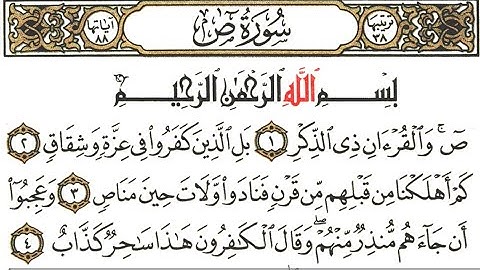 ترتيبها ٣٨ سُورَةُ صٓ آياتها ٨٨
بِسْمِ ٱللَّهِ ٱلرَّحْمَٰنِ ٱلرَّحِيمِ
صٓ ۚ وَٱلْقُرْءَانِ ذِى ٱلذِّكْرِ ١ بَلِ ٱلَّذِينَ كَفَرُوا۟ فِى عِزَّةٍ وَشِقَاقٍ ٢
كَمْ أَهْلَكْنَا مِن قَبْلِهِم مِّن قَرْنٍ فَنَادَوا۟ وَّلَاتَ حِينَ مَنَاصٍ ٣ وَعَجِبُوٓا۟
أَن جَآءَهُم مُّنذِرٌ مِّنْهُمْ ۖ وَقَالَ ٱلْكَٰفِرُونَ هَٰذَا سَٰحِرٌ كَذَّابٌ ٤